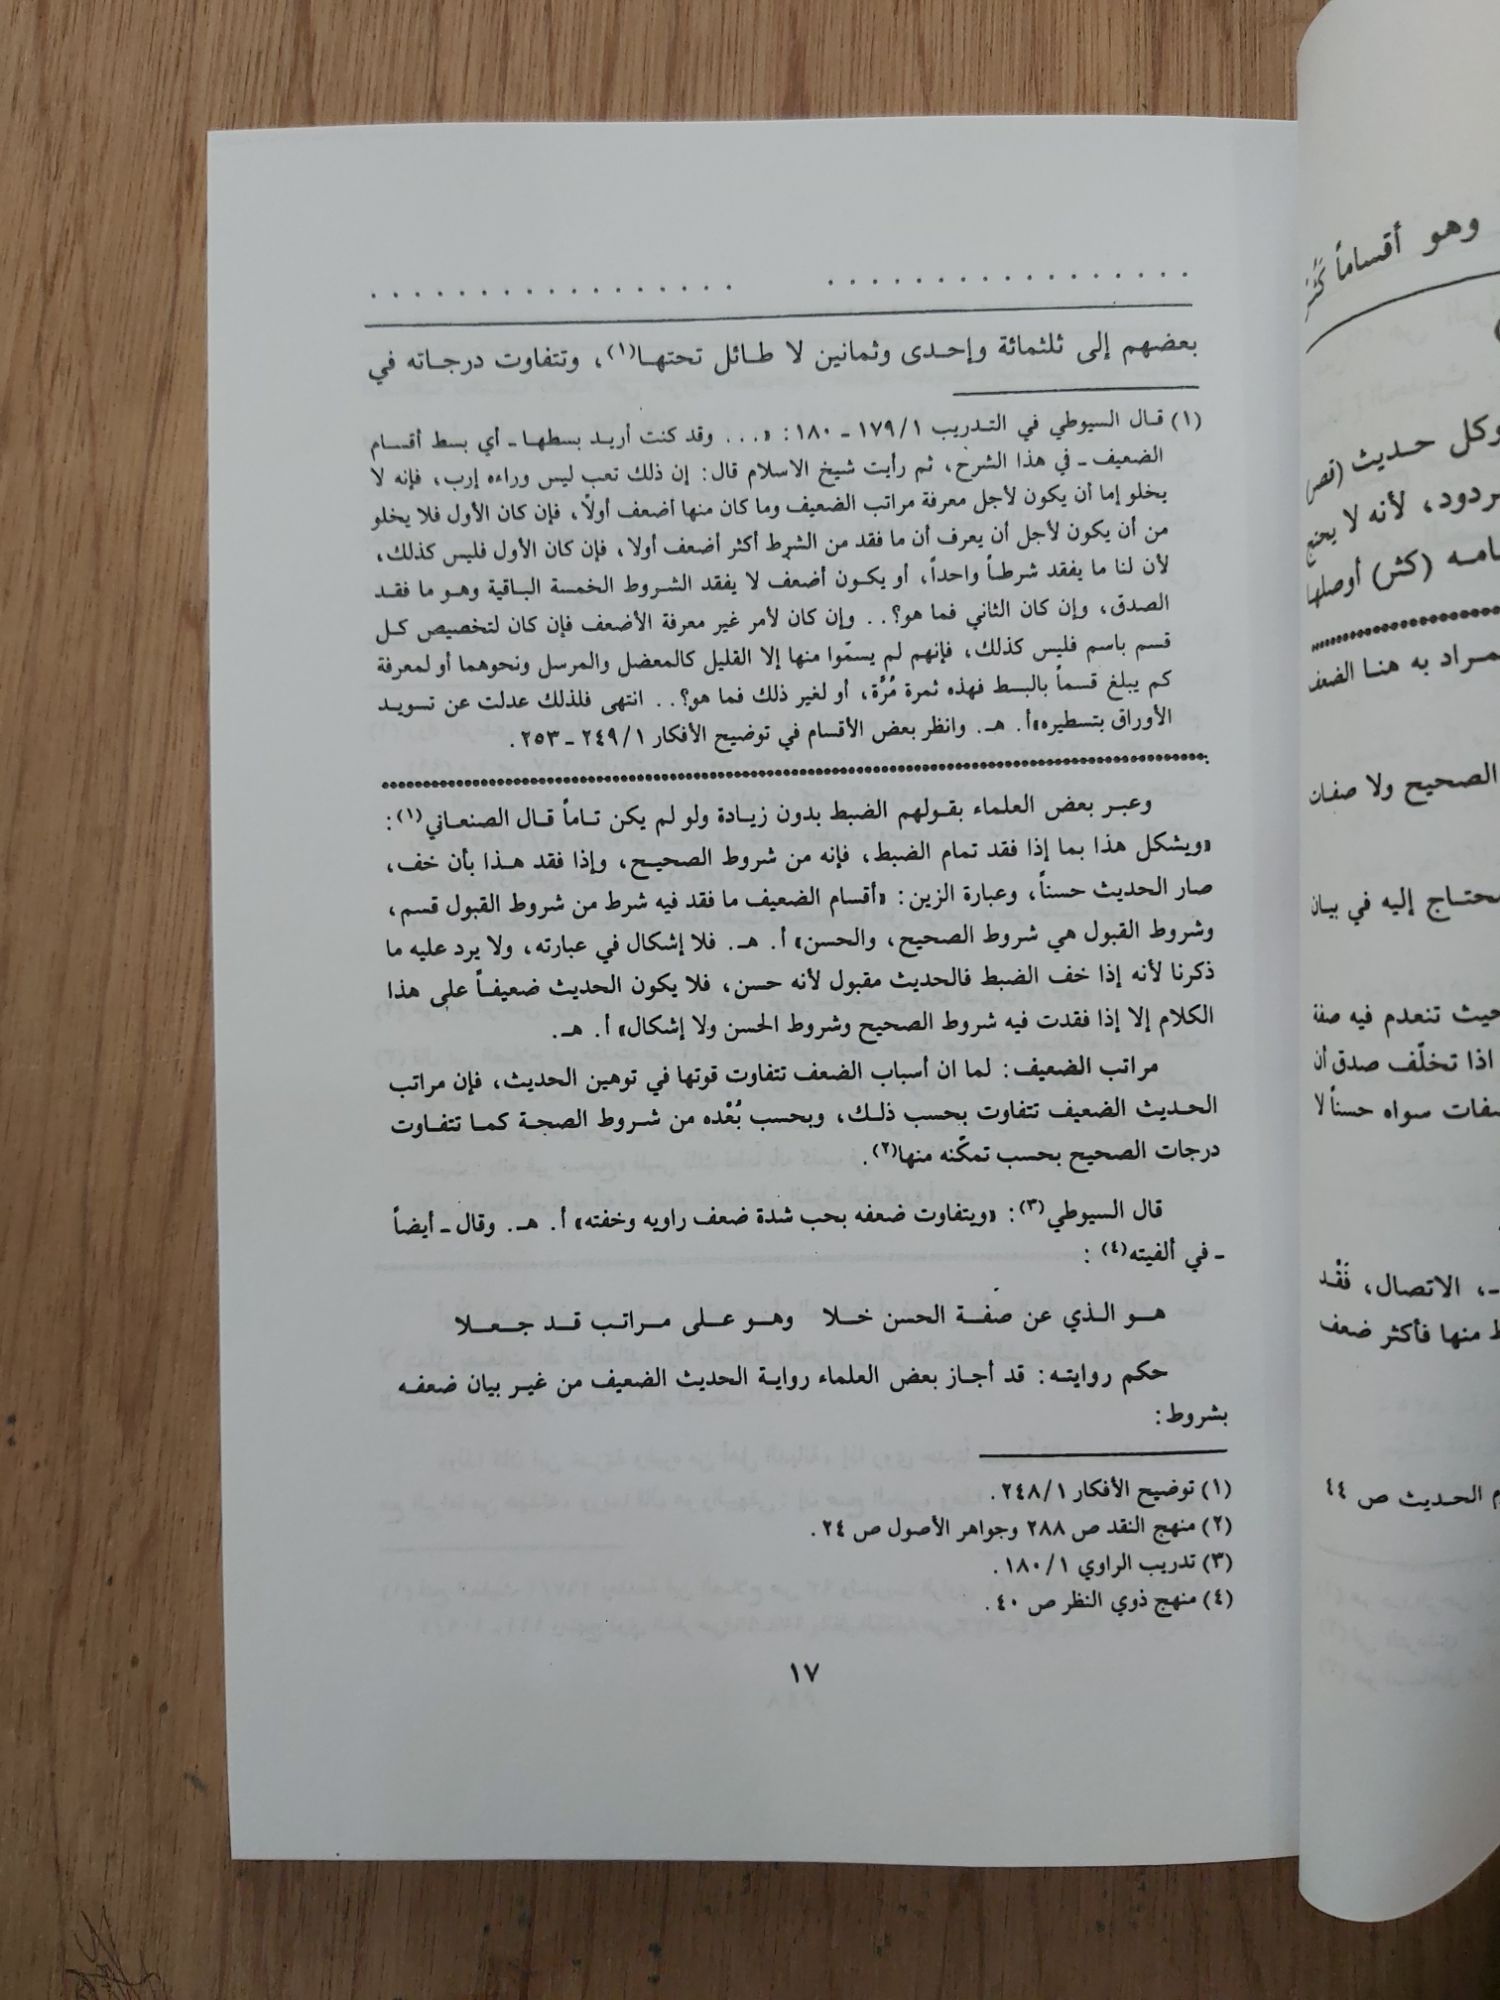 بعضهم إلى ثلثمائة وإحدى وثمانين لا طائل تحتها(١)، وتتفاوت درجاته في
(١) قال السيوطي في التدريب ١/١٧٩ ـ ١٨٠: «... وقد كنت أريد بسطها ـ أي بسط أقسام
الضعيف ـ في هذا الشرح، ثم رأيت شيخ الاسلام قال: إن ذلك تعب ليس وراءه إرب، فإنه لا
يخلو إما أن يكون لأجل معرفة مراتب الضعيف وما كان منها أضعف أولاً، فإن كان الأول فلا يخلو
من أن يكون لأجل أن يعرف أن ما فقد من الشرط أكثر أضعف أولا، فإن كان الأول فليس كذلك،
لأن لنا ما يفقد شرطاً واحداً، أو يكون أضعف لا يفقد الشروط الخمسة الباقية وهو ما فقد
الصدق، وإن كان الثاني فما هو؟.. وإن كان لأمر غير معرفة الأضعف فإن كان لتخصيص كل
قسم باسم فليس كذلك، فإنهم لم يسمّوا منها إلا القليل كالمعضل والمرسل ونحوهما أو لمعرفة
كم يبلغ قسماً بالبسط فهذه ثمرة مُرَّة، أو لغير ذلك فما هو؟.. انتهى فلذلك عدلت عن تسويد
الأوراق بتسطيره» أ. هـ. وانظر بعض الأقسام في توضيح الأفكار ١/٢٤٩ ـ ٢٥٣.
وعبر بعض العلماء بقولهم الضبط بدون زيادة ولو لم يكن تاماً قال الصنعاني(١):
«ويشكل هذا بما إذا فقد تمام الضبط، فإنه من شروط الصحيح، وإذا فقد هذا بأن خف،
صار الحديث حسناً، وعبارة الزين: «أقسام الضعيف ما فقد فيه شرط من شروط القبول قسم،
وشروط القبول هي شروط الصحيح، والحسن» أ. هـ. فلا إشكال في عبارته، ولا يرد عليه ما
ذكرنا لأنه إذا خف الضبط فالحديث مقبول لأنه حسن، فلا يكون الحديث ضعيفاً على هذا
الكلام إلا إذا فقدت فيه شروط الصحيح وشروط الحسن ولا إشكال» أ. هـ.
مراتب الضعيف: لما ان أسباب الضعف تتفاوت قوتها في توهين الحديث، فإن مراتب
الحديث الضعيف تتفاوت بحسب ذلك، وبحسب بُعْده من شروط الصحة كما تتفاوت
درجات الصحيح بحسب تمكّنه منها(٢).
قال السيوطي(٣): «ويتفاوت ضعفه بحب شدة ضعف راويه وخفته» أ. هـ. وقال ـ أيضاً
ـ في ألفيته(٤):
هو الذي عن صفة الحسن خلا وهو على مراتب قد جعلا
حكم روايته: قد أجاز بعض العلماء رواية الحديث الضعيف من غير بيان ضعفه
بشروط:
(١) توضيح الأفكار ١/٢٤٨.
(٢) منهج النقد ص ٢٨٨ وجواهر الأصول ص ٢٤.
(٣) تدريب الراوي ١/١٨٠.
(٤) منهج ذوي النظر ص ٤٠.
١٧
وهو أقساماً
وكل حديث
لأنه لا يحتج
(كثر) أوصلها
به هنا الضعف
الصحيح ولا صفات
إليه في بيان
تنعدم فيه صفة
اذا تخلّف صدق أن
سواه حسناً لا
الاتصال، فَقْد
منها فأكثر ضعف
الحديث ص ٤٤